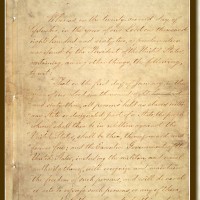 Whereas, on the twenty-second day of
September, in the year of our Lord one thousand
eight hundred and sixty-two, a proclamation was
issued by the President of the United States,
containing, among other things, the following,
to wit:
"That on the first day of January, in the
year of our Lord one thousand
and sixty-three, all persons held as slaves within
any State or designated part of a State, the people
whereof shall then be in rebellion against the
United States, shall be then, thenceforward, and
forever free; and the Executive Government of the
United States, including the military and naval
authority thereof, will recognize and
the freedom of such persons, and will do no act
or acts to repress such persons, or any of them,